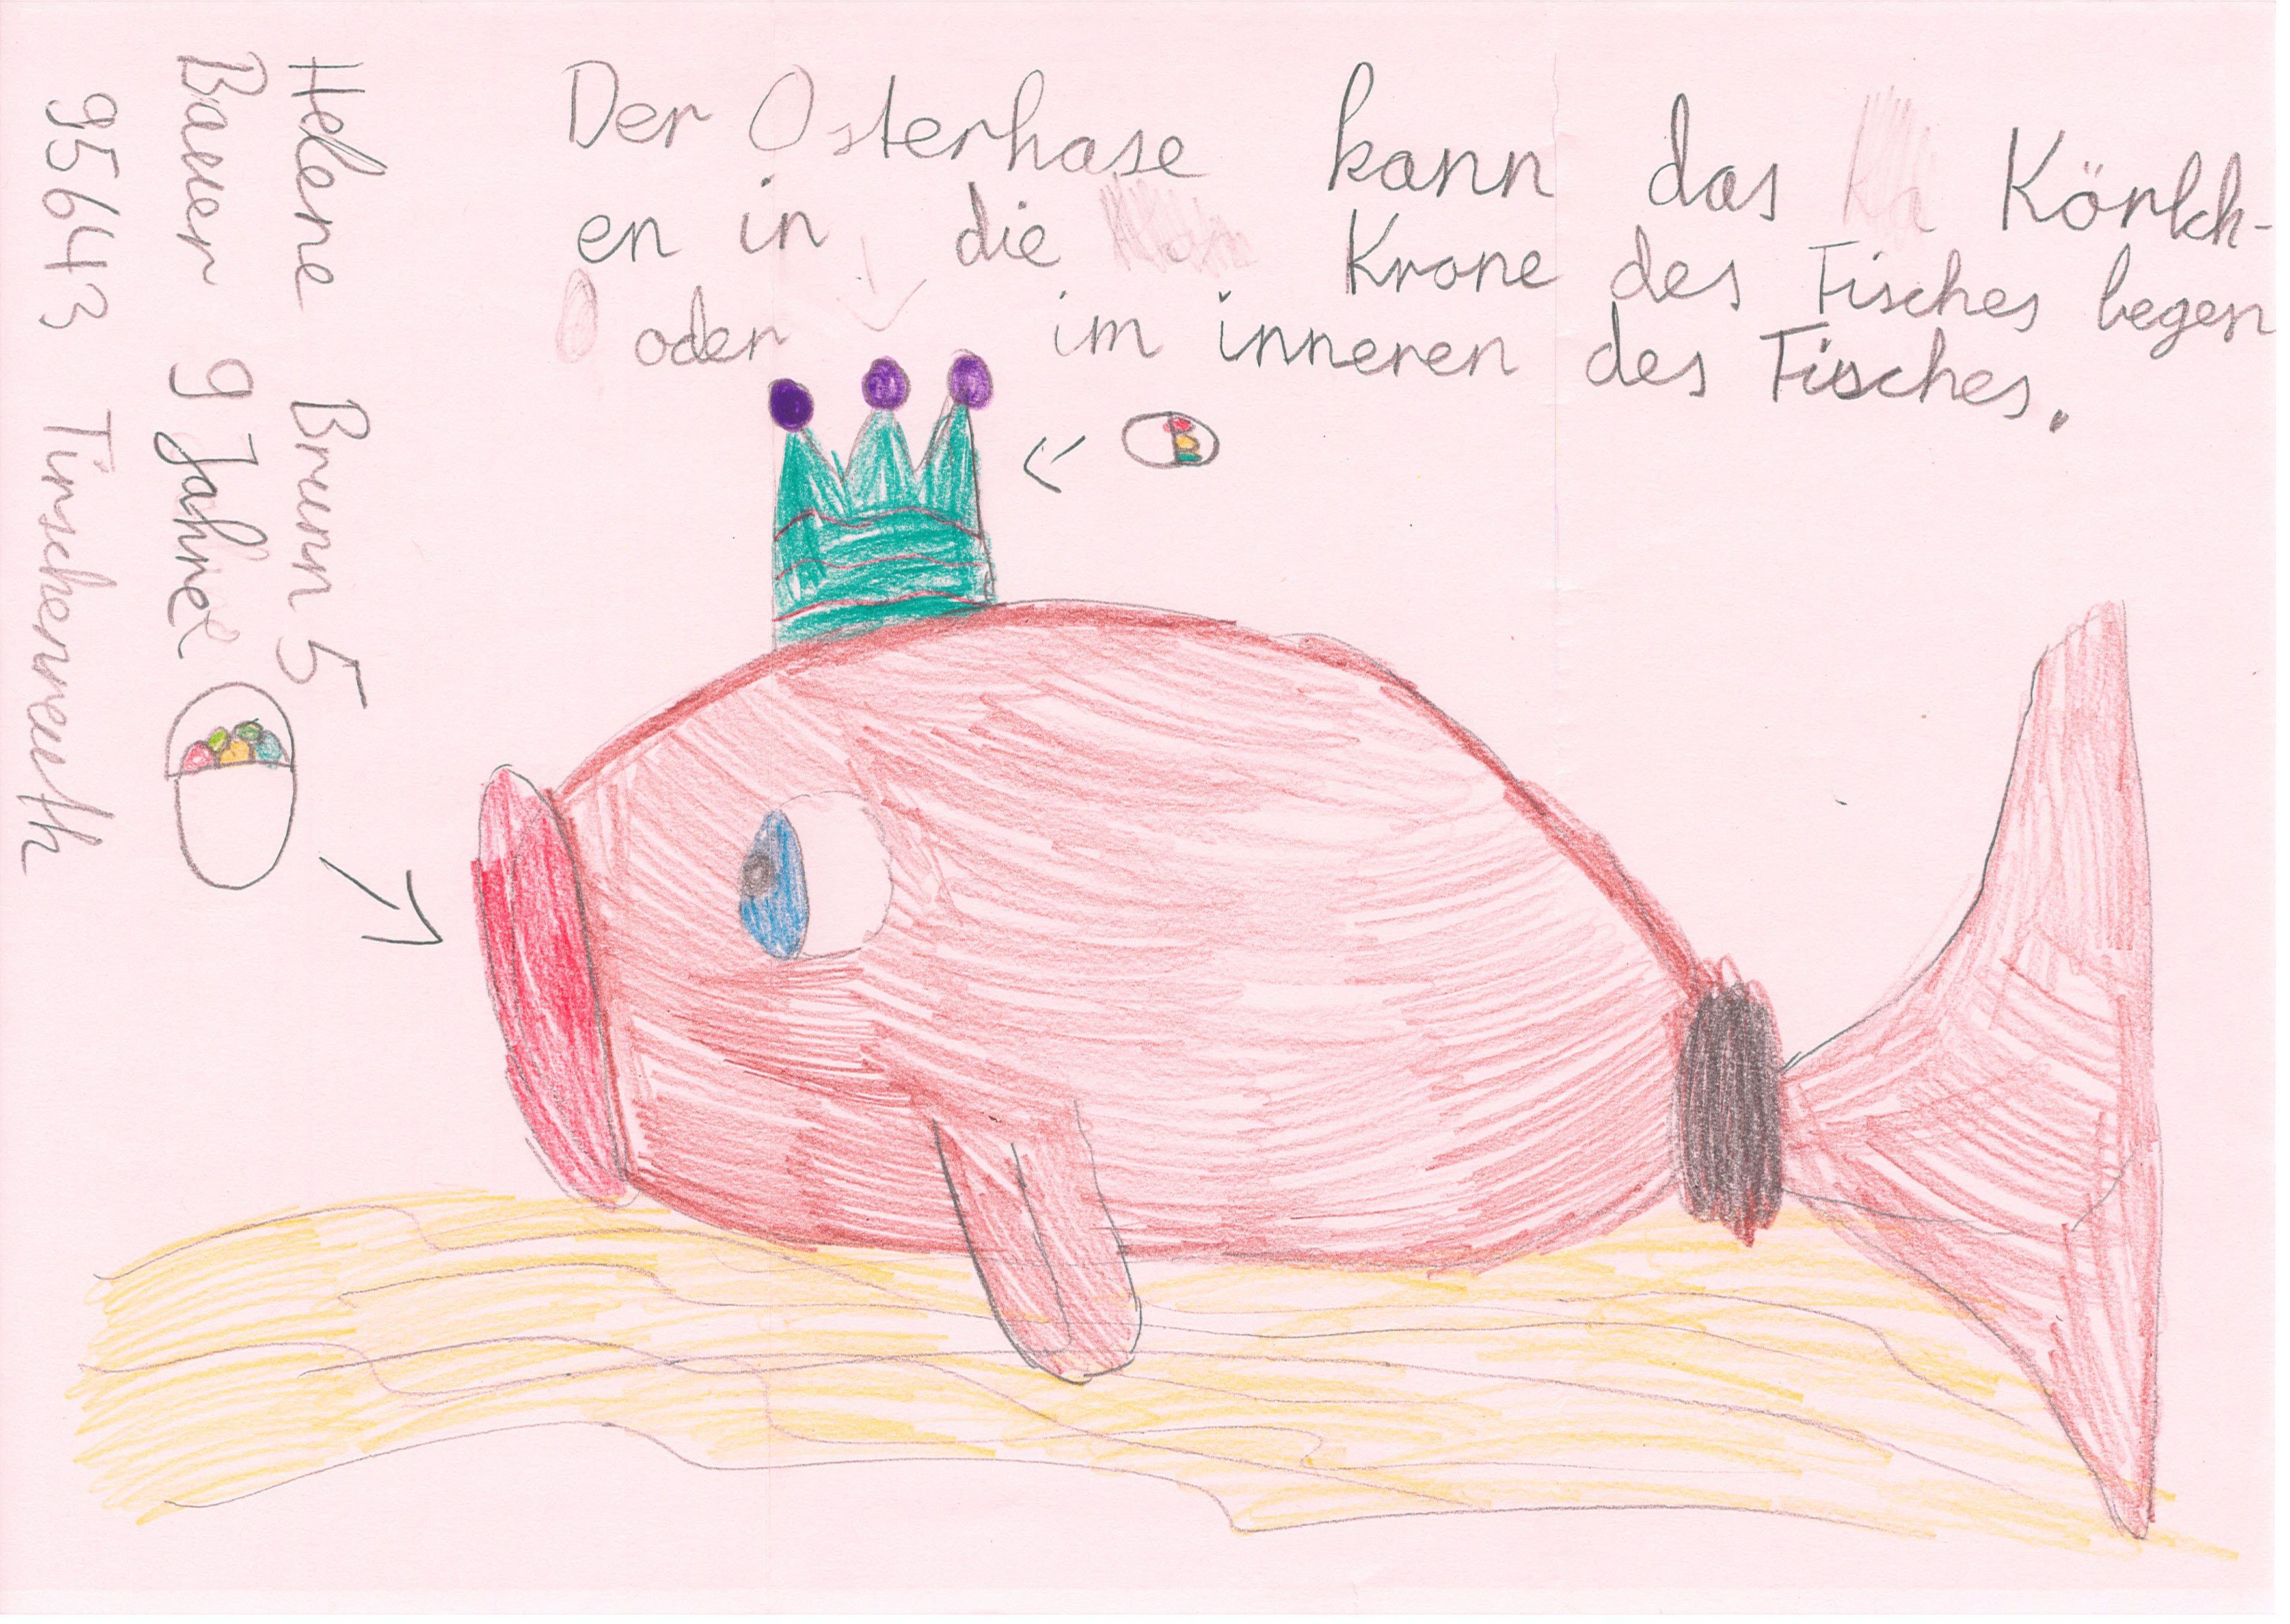 Der Osterhase kann das Körlch-
en in die Krone des Fisches legen
oder im inneren des Fisches.
Helene Brunn 5
Bauer 9 Jahre
95643 Tirschenreuth